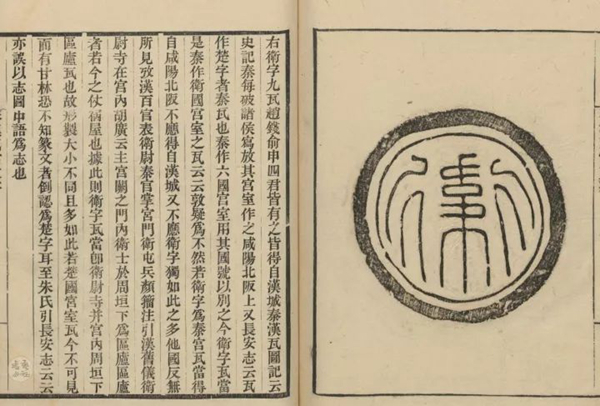 右衛字九瓦趙錢俞申四君皆有之皆得自漢城秦漢瓦圖記云
史記秦每破諸侯寫放其宮室作之咸陽北阪上又長安志云瓦
作楚字者秦瓦也秦作六國宮室用其國號以別之今衛字瓦當
是秦作衛國宮室之瓦云云敦疑爲不然若衛字爲秦宮瓦當得
自咸陽北阪不應得自漢城又不應衛字獨如此之多他國反無
所見攷漢百官表衛尉秦官掌宮門衛屯兵顏籀注引漢舊儀衛
尉寺在宮內胡廣云主宮闕之門內衛士於周垣下爲區廬區廬
者若今之仗宿屋也據此則衛字瓦當卽衛尉寺并宮內周垣下
區廬瓦也故形製大小不同且多如此若楚國宮室瓦今不可見
而有甘林恐不知篆文者倒認爲楚字耳至朱氏引長安志云云
亦誤以志圖中語爲志也